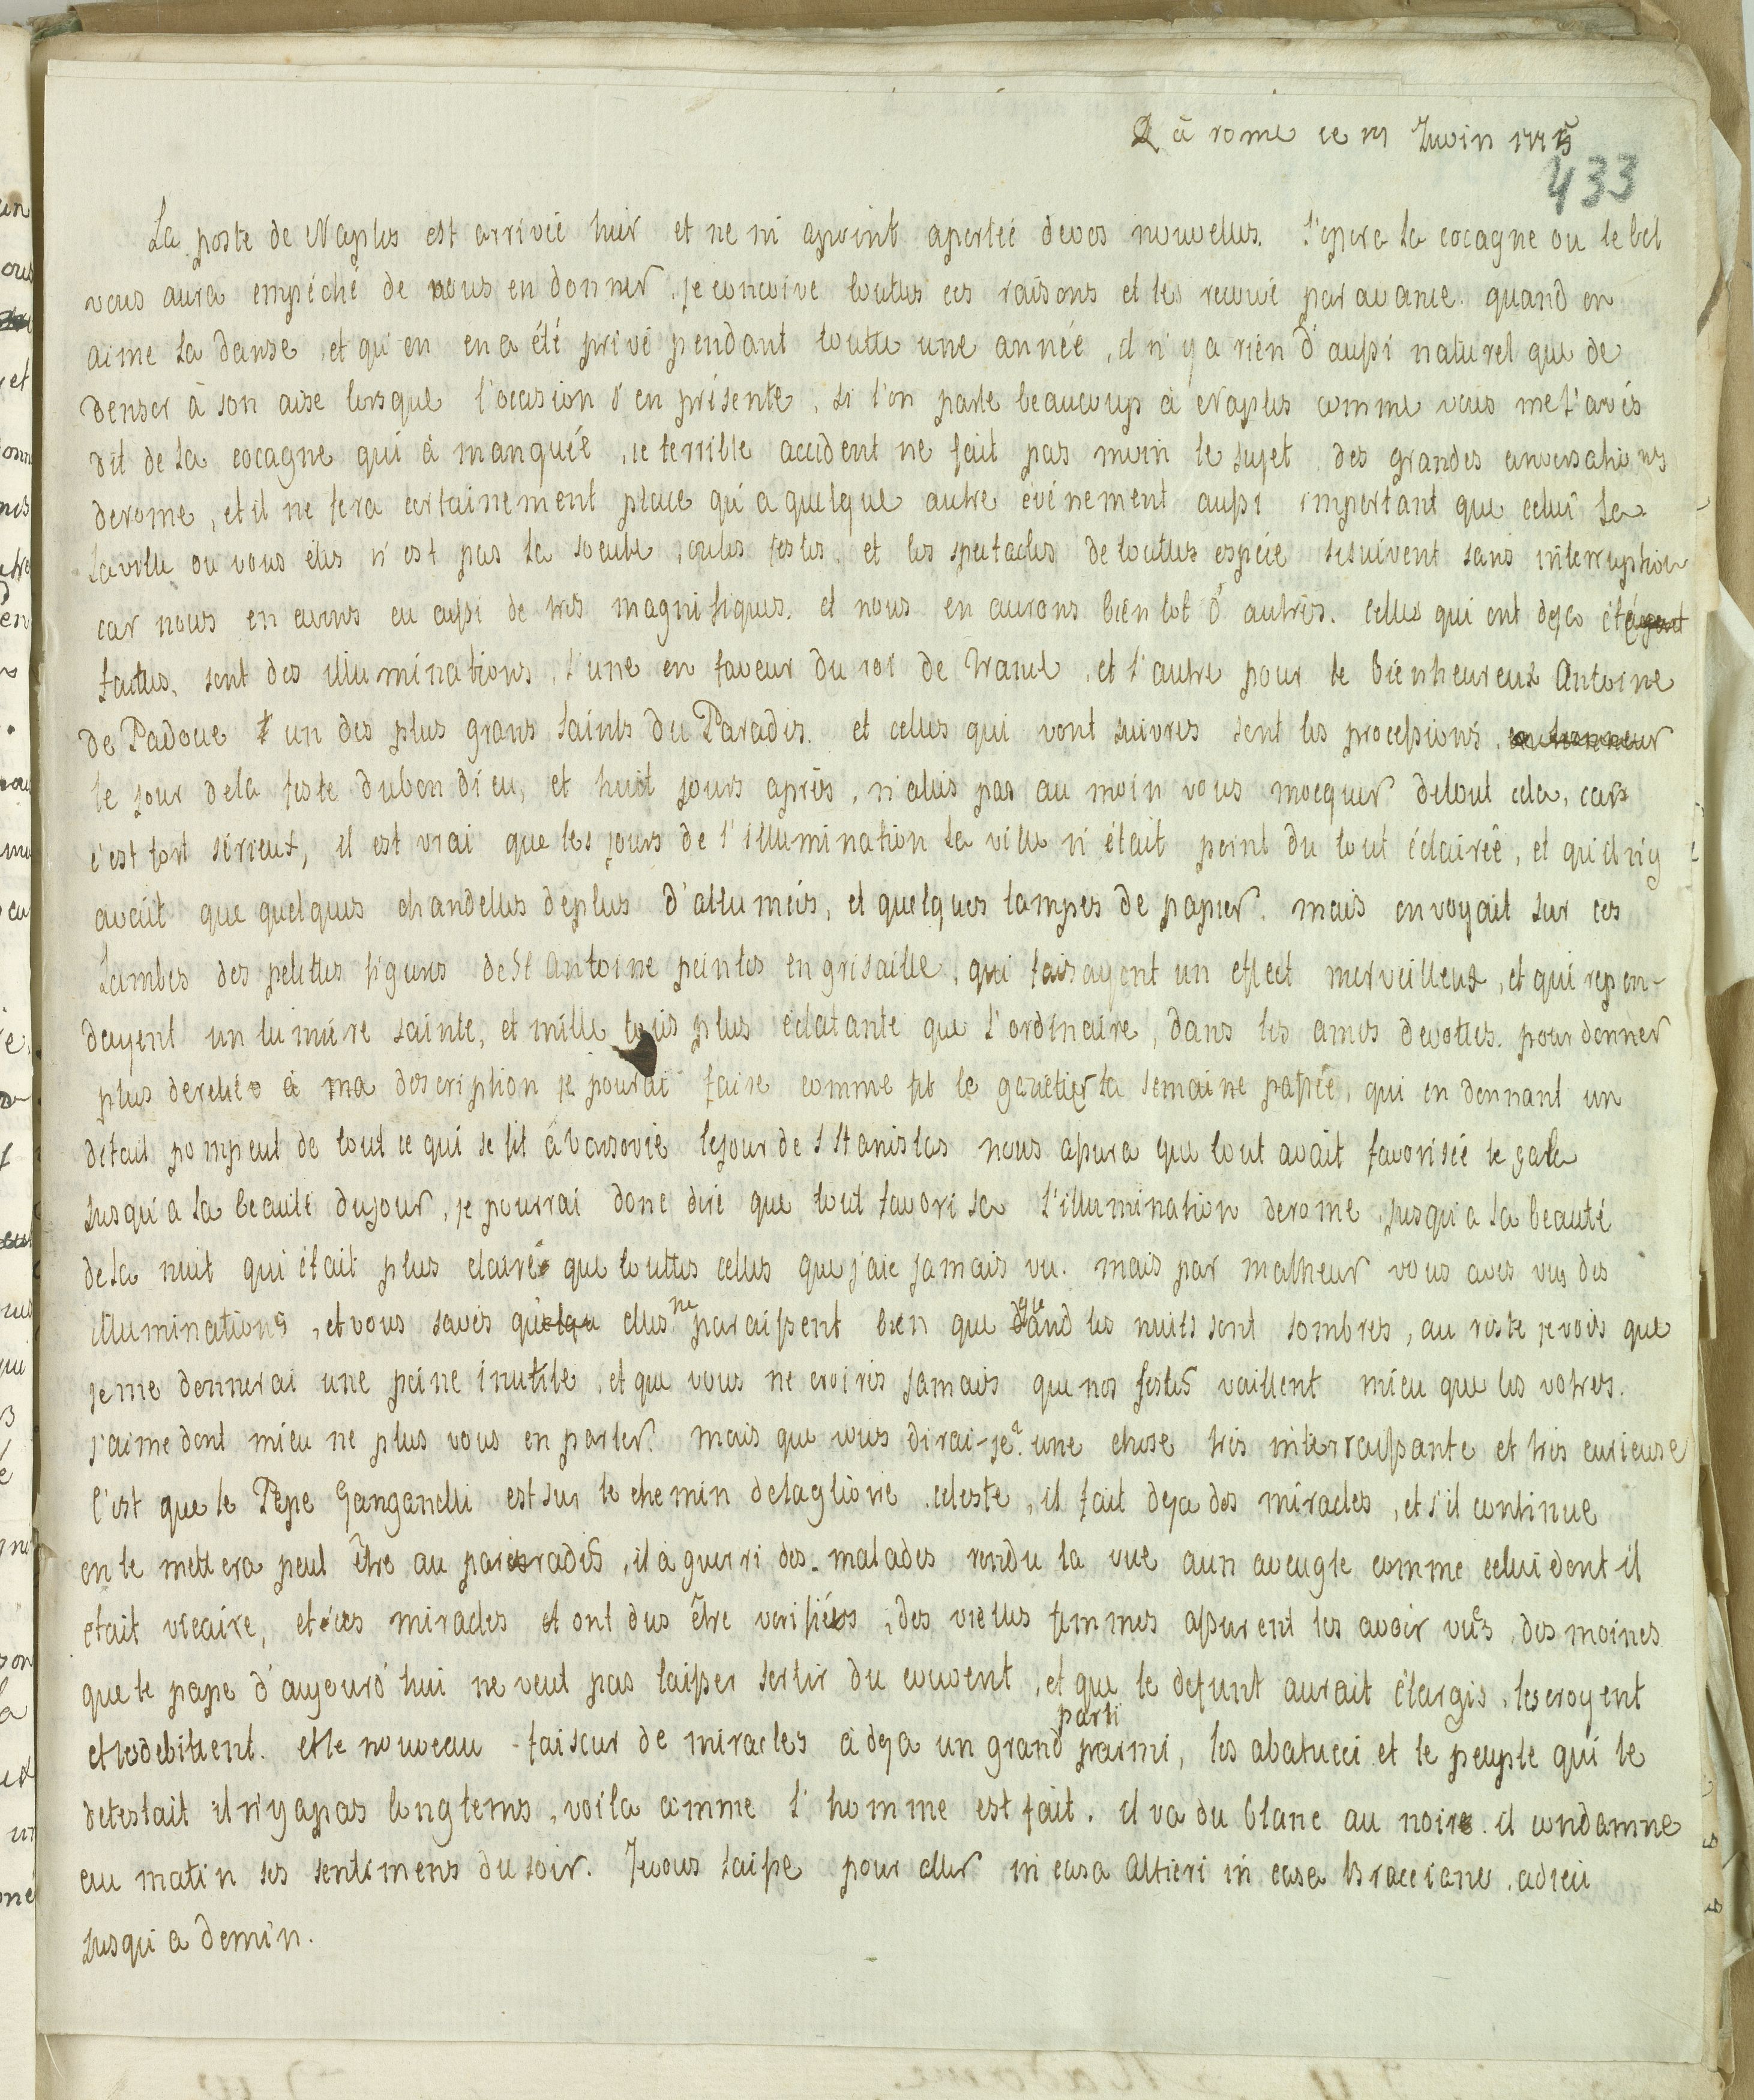 à rome ce 17 Juin 1775
433
La poste de Naples est arrivée hier et ne m'a point aportée de vos nouvelles. l'opera la cocagne ou le bal
vous aura empéché de nous en donner, je conçoive toutes ces raisons et les recoive par avance. quand on
aime la danse, et qu'on en a été privé pendant toutte une année, il n'y a rien d'aussi naturel que de
denser à son aise lorsque l'occasion s'en présente, si l'on parle beaucoup à Naples comme vous me l'avés
dit de la cocagne qui à manquée, ce terrible accident ne fait pas moin le sujet des grandes conversations
de rome, et il ne fera certainement place qu'a quelque autre événement aussi important que celui la
la ville ou vous étes n'est pas la seule, ou les festes, et les spectacles de toutes espéce se suivent sans interruption
car nous en avons eu aussi de tres magnifiques, et nous en aurons bientot d'autres. celles qui ont deja été
faites, sont des illuminations, l'une en faveur du roi de France, et l'autre pour le bienheureux Antoine
de Padoue l'un des plus grans saints du Paradis. et celles qui vont suivres sont les processions, au honneur
le jour de la feste du bon dieu, et huit jours aprés, n'alés pas au moin vous mocquer de tout cela, car
c'est fort sérieux, il est vrai que les jours de l'illumination la ville n'était point du tout éclairée, et qu'il n'y
avait que quelques chandelles de plus d'allumées, et quelques lampes de papier. mais on voyait sur ces
lambes des petittes figures de St Antoine peintes en grisaille, qui faisayent un effect merveilleux, et qui repen-
dayent un lumiére sainte, et mille fois plus éclatante que l'ordinaire, dans les ames devottes. pour donner
plus de reliéf à ma description je pourai faire comme fit le gazetier la semaine passée, qui en donnant un
détail pompeux de tout ce qui se fit à Varsovie le jour de S Stanislas nous assura que tout avait favorisée le gala
jusqu'a la beauté du jour, je pourrai donc dire que tout favorisa l'illumination de rome, jusqu'a la beauté
de la nuit qui était plus claire que touttes celles que j'aie jamais vu. mais par malheur vous avés vus des
illuminations, et vous savés quelque elles ne paraissent bien que quand les nuits sont sombres, au reste je vois que
je me donnerai une peine inutile, et que vous ne croirés jamais que nos festes vaillent mieu que les votres.
j'aime dont mieu ne plus vous en parler. mais que vous dirai-je? une chose trés interraissante et trés curieuse
c'est que le Pape Ganganelli est sur le chemin de la gloire celeste, il fait deja des miracles, et s'il continue
on le mettera peut être au parisradis, il à guerri des malades rendu la vue a un aveugle comme celui dont il
etait vicaire, et ces miracles et ont dus être verifiées, des vielles femmes assurent les avoir vues, des moines
que le pape d'aujourd'hui ne veut pas laisser sortir du couvent, et que le defunt aurait élargis, les croyent
et les debitent. et le nouveau faiseur de miracles à deja un grand parti parmi, les abatucci et le peuple qui le
detestait il n'y a pas longtems, voila comme l'homme est fait. il va du blanc au noire. il condamne
au matin ses sentimens du soir. Je vous laisse pour aller in casa Altieri in casa Bracciano. adieu
jusqu'a demin.